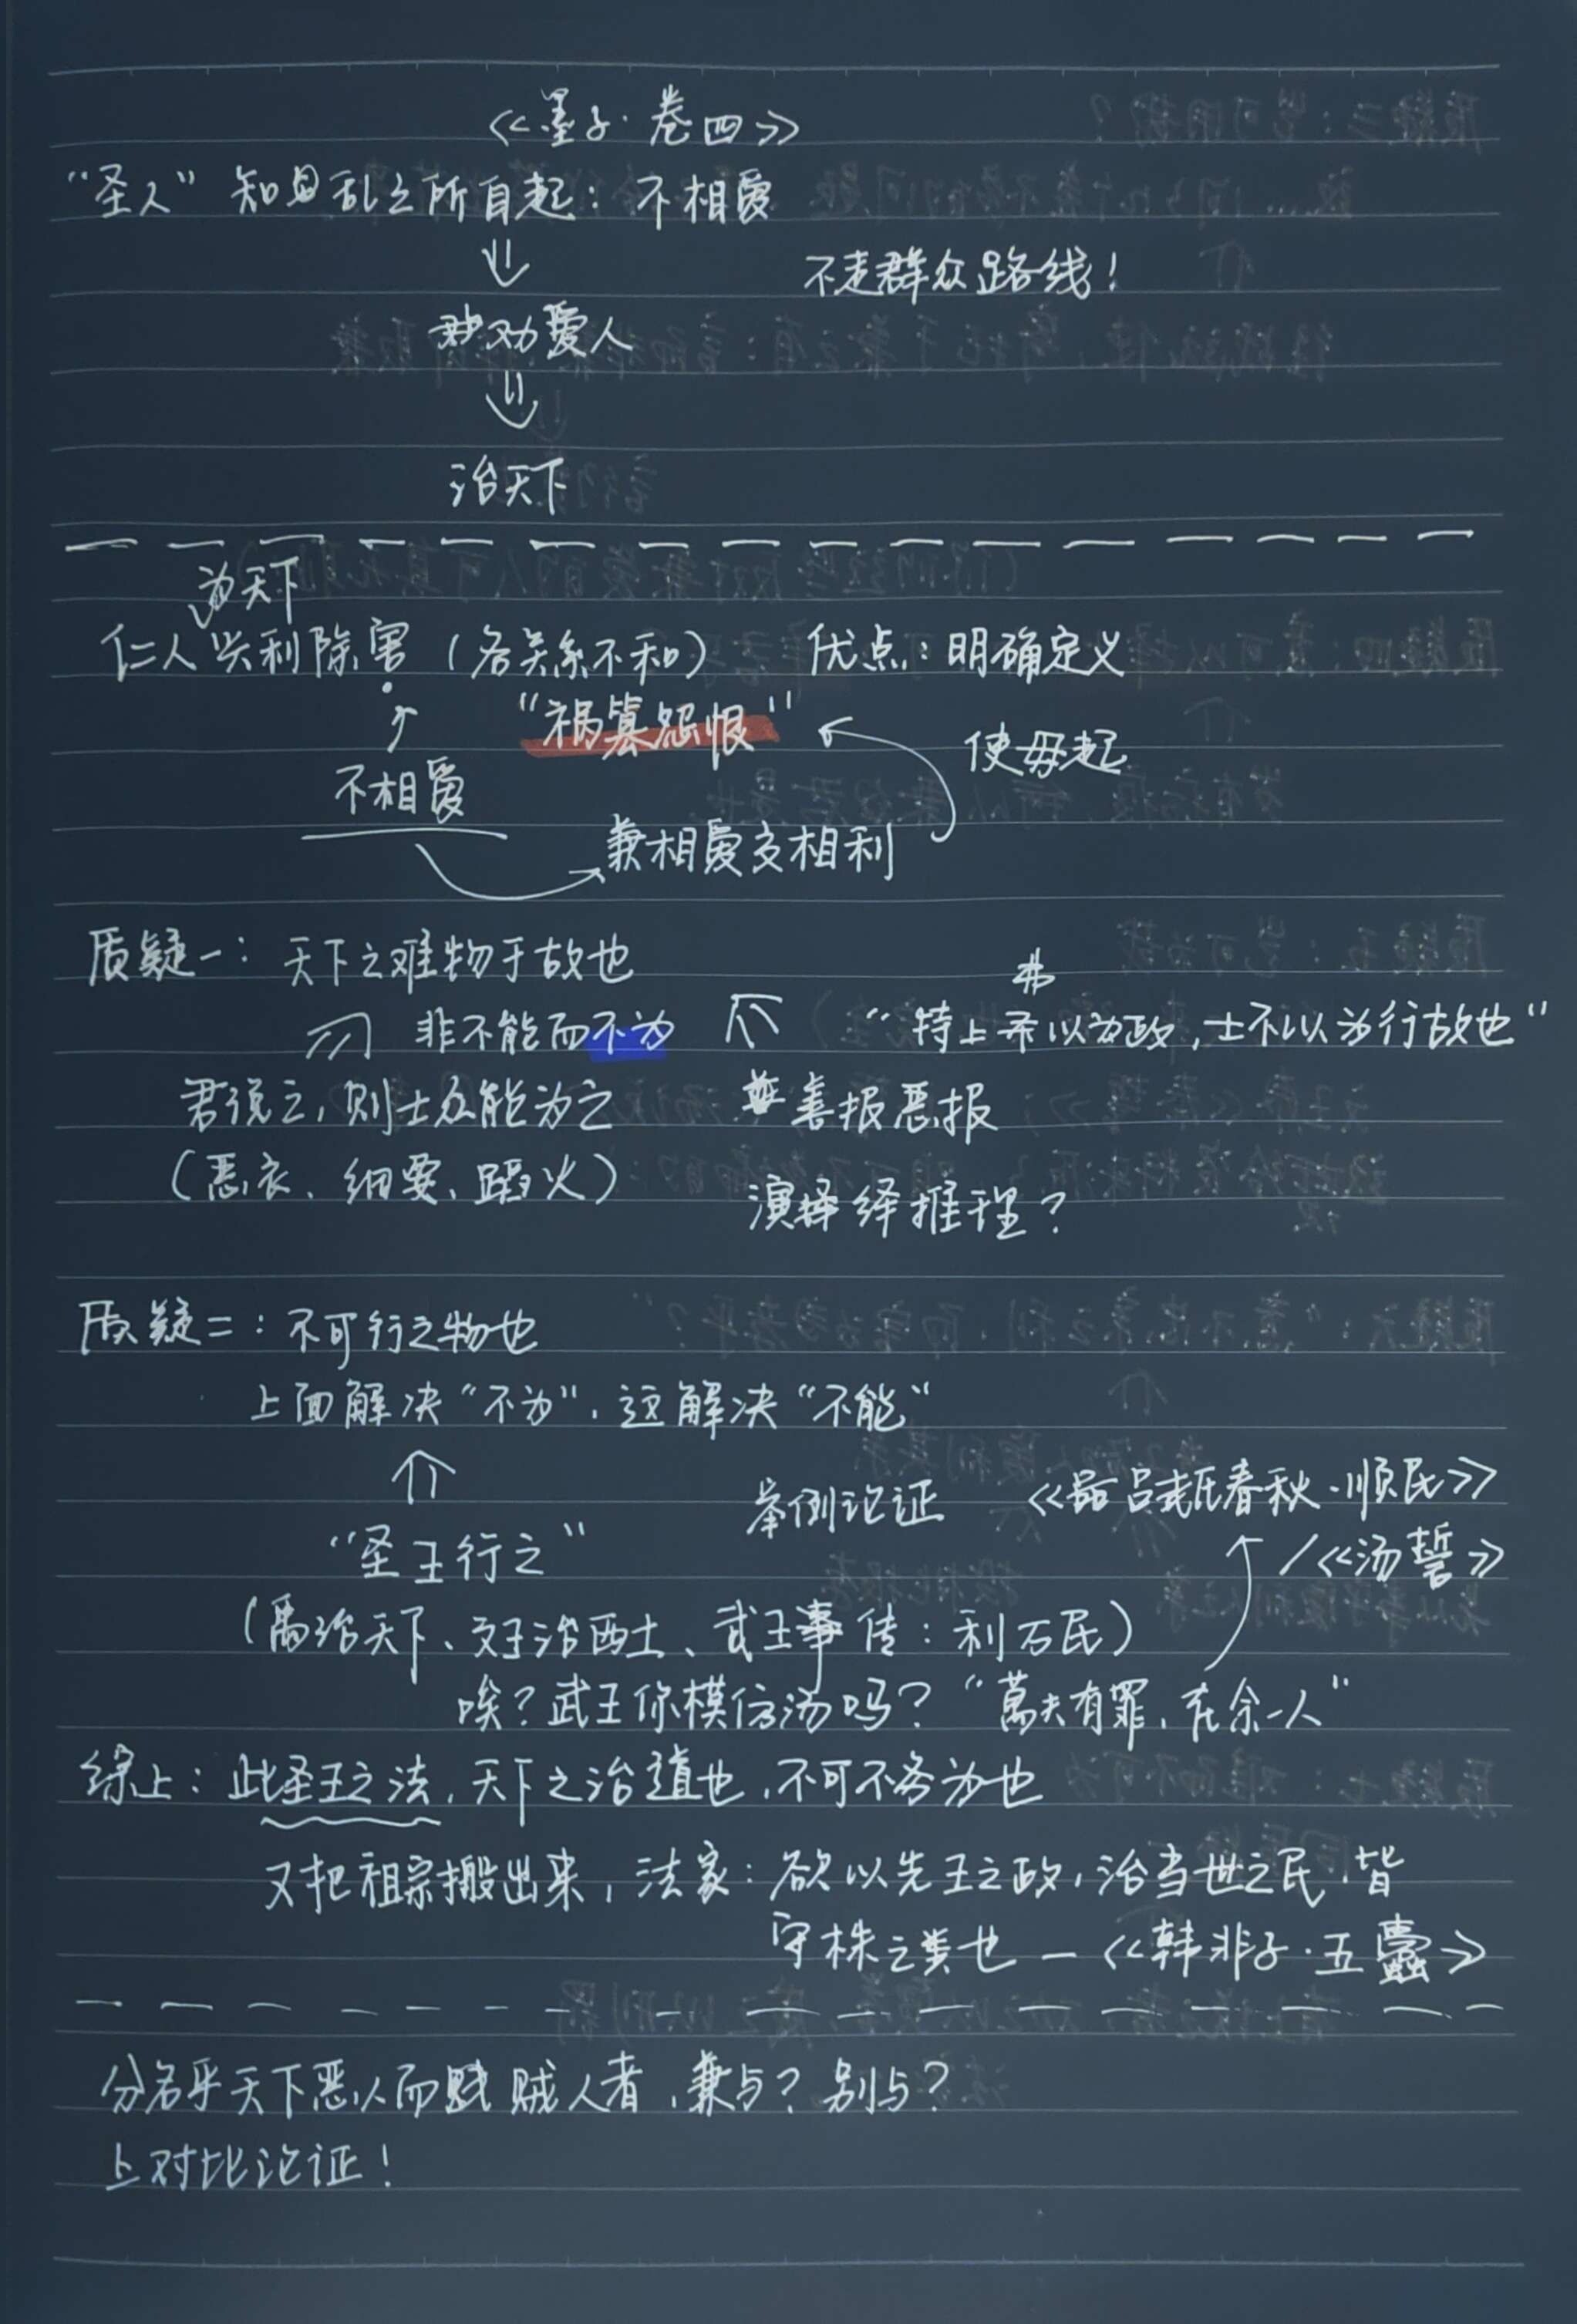 《墨子·卷四》
“圣人”知乱之所自起：不相爱
不走群众路线！
劝爱人
治天下
为天下
仁人兴利除害（各关系不和） 优点：明确定义
“祸篡怨恨” 使毋起
不相爱
兼相爱交相利
质疑一：天下之难物于故也
弗
非不能而不为 “特上以为政，士不以为行故也”
君说之，则士众能为之 善报恶报
（恶衣、细要、蹈火） 演绎推理？
质疑二：不可行之物也
上面解决“不为”，这解决“不能”
举例论证 《吕氏春秋·顺民》
“圣王行之” /《汤誓》
（禹治天下、文王治西土、武王事传：利万民）
唉？武王你模仿汤吗？“萬夫有罪，在余一人”
综上：此圣王之法，天下之治道也，不可不务为也
又把祖宗搬出来，法家：欲以先王之政，治当世之民，皆
守株之类也—《韩非子·五蠹》
分名乎天下恶人而贼人者，兼与？别与？
上对比论证！